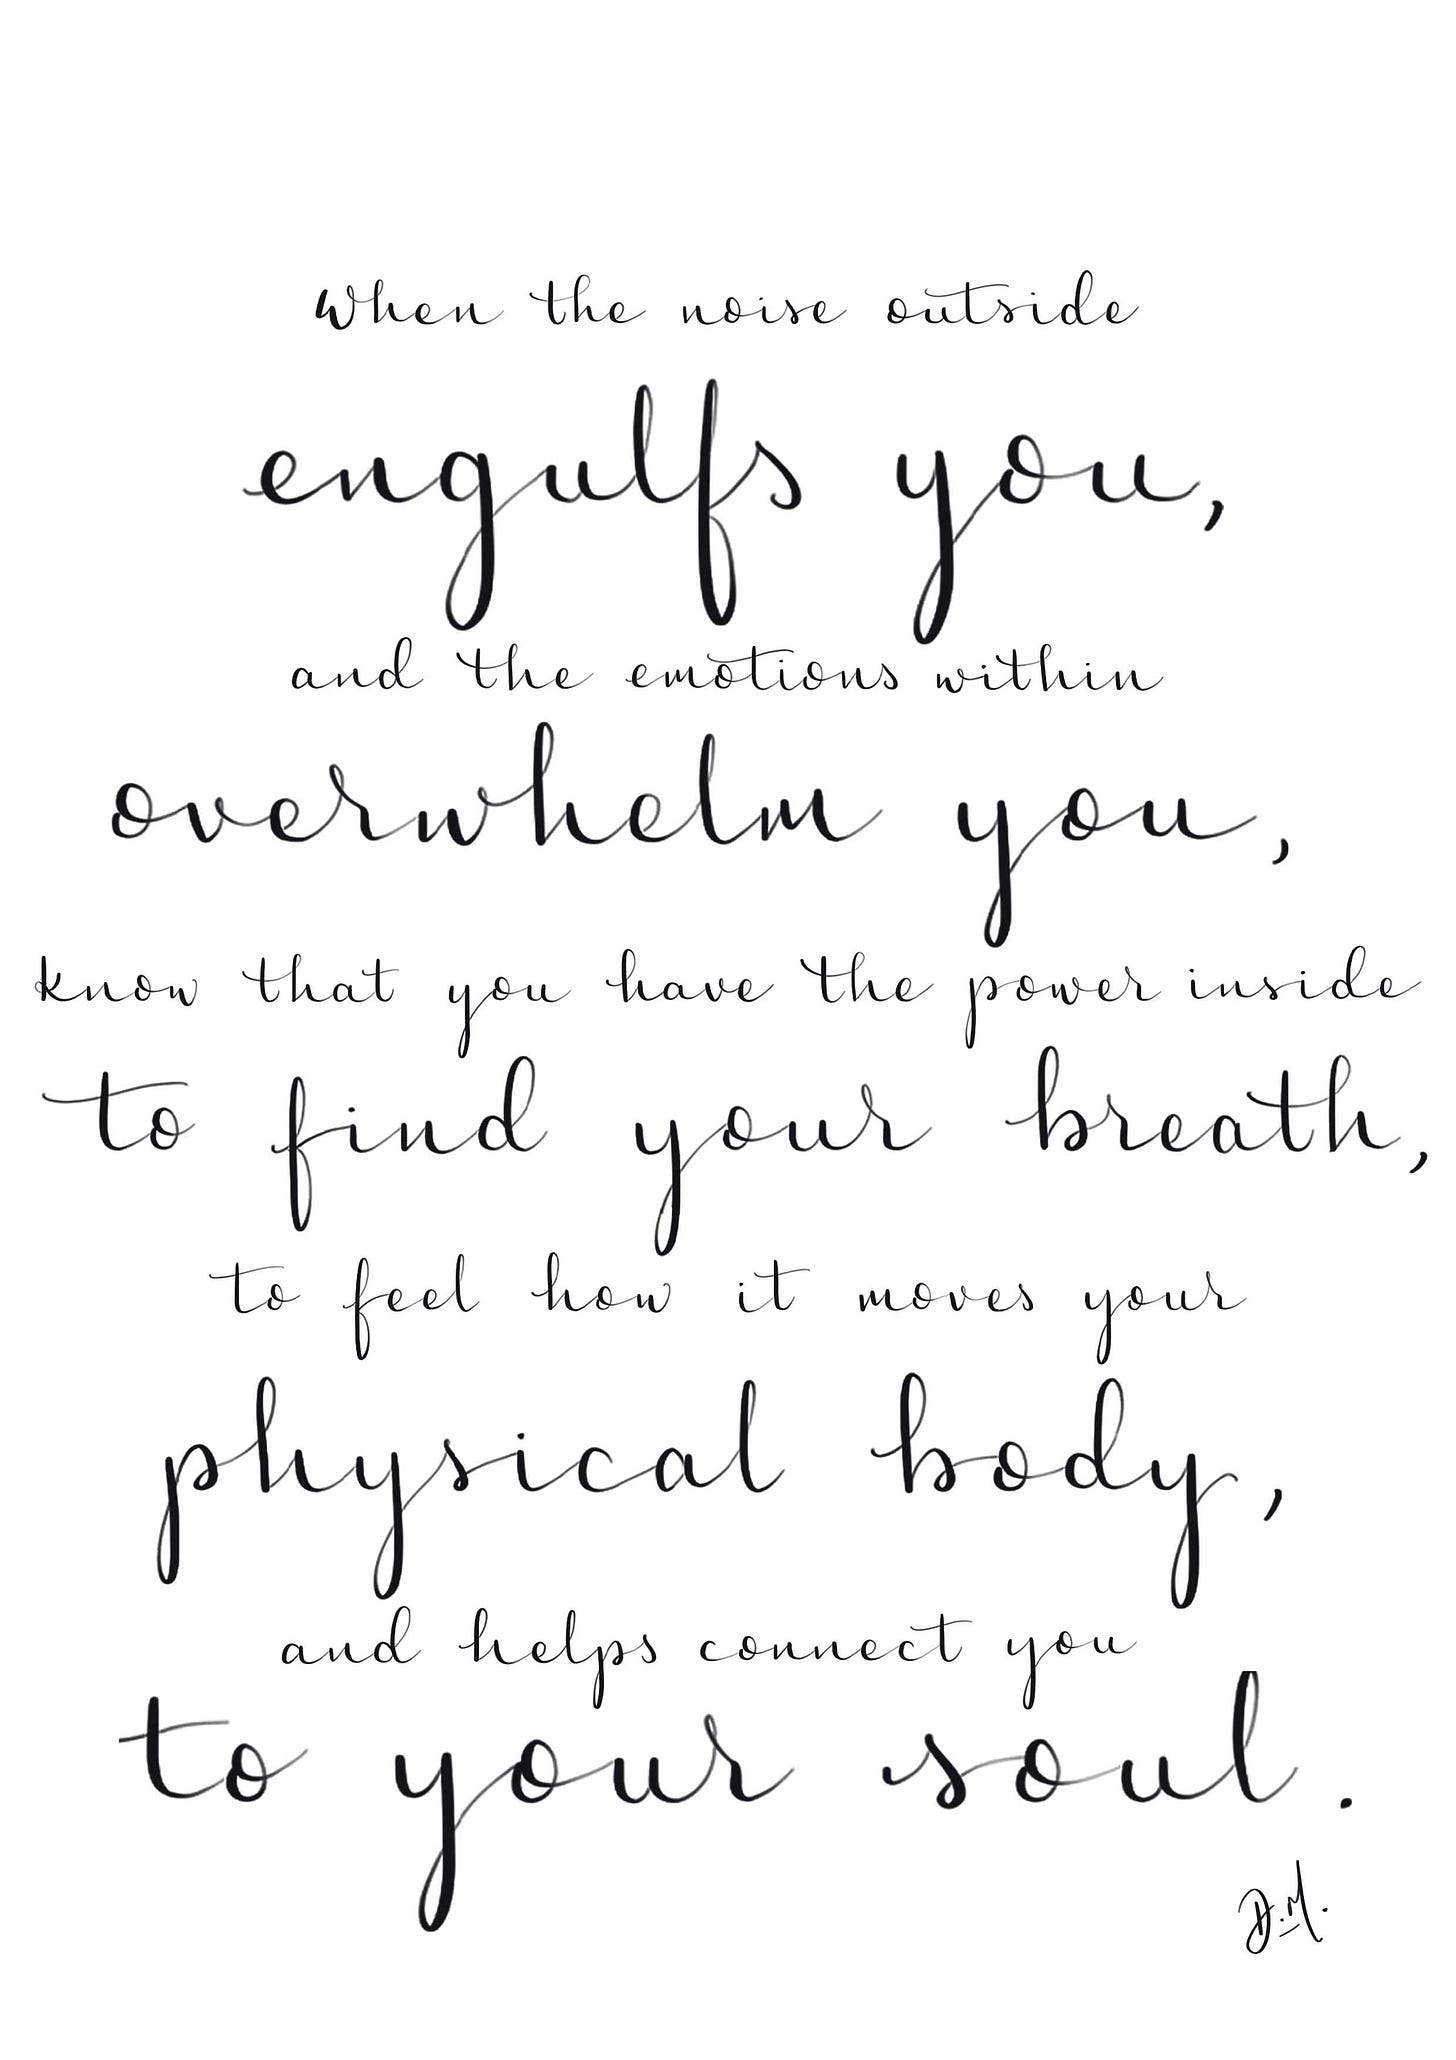 When the noise outside
engulfs you,
and the emotions within
overwhelm you,
know that you have the power inside
to find your breath,
to feel how it moves your
physical body,
and helps connect you
to your soul.
D.M.